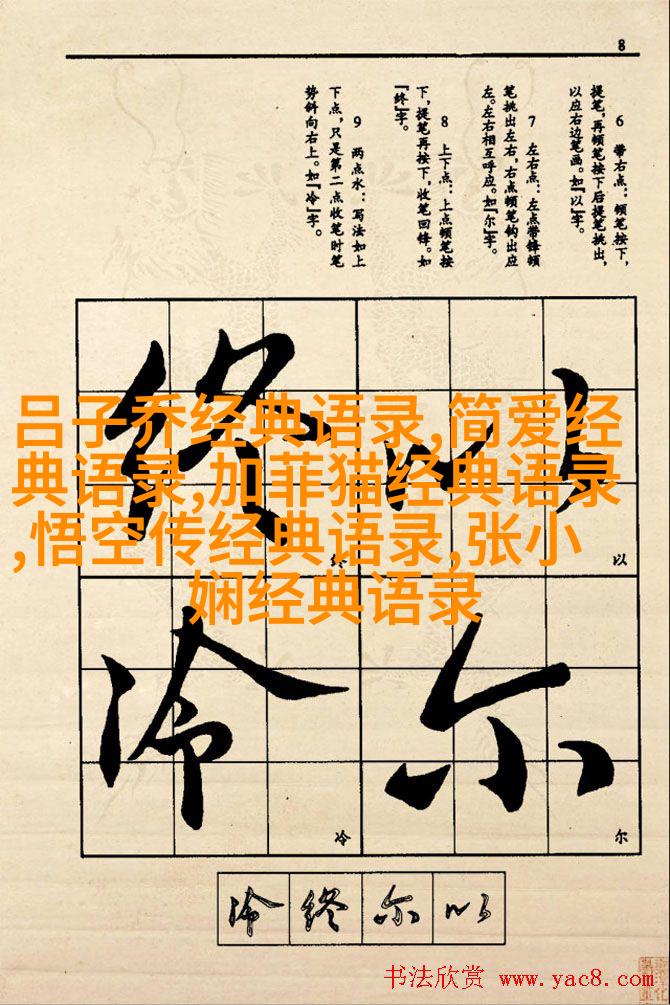 8
6 带右点：顿笔按下，
提笔，再顿笔按下后提笔挑出，
以应右边笔画。如『以』字。
7 左右点：左点带锋顿
笔挑出左右，右点顿笔钩出应
左。左右相互呼应。如『尔』字。
8 上下点：上点顿笔按
下，提笔再按下，收笔回锋。如
『终』字。
9 两点水：写法如上
下点，只是第二点收笔时笔
势斜向右上。如『冷』字。
吕子乔经典语录,简爱经
典语录,加菲猫经典语录
,悟空传经典语录,张小
娴经典语录
终 以
终 以
冷 尔
冷 尔
冷 终 尔 以
书法欣赏 www.yac8.com